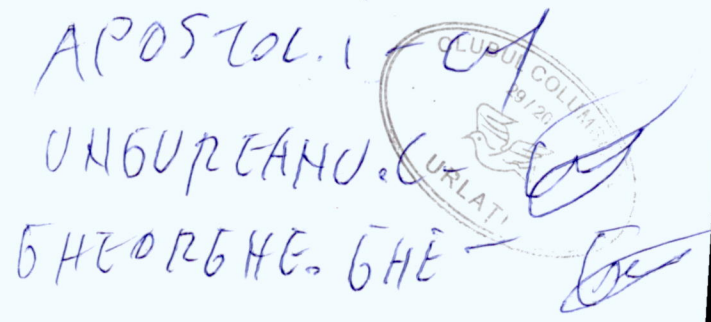 APOSTOL. I -
UNGUREANU. C -
GHEORGHE. GHE -
CLUBUL COLUMB
29/20
URLAȚI